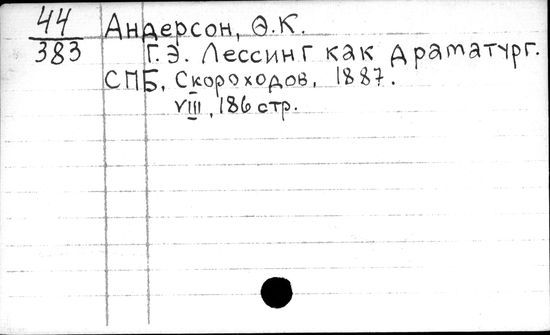 44
383
Андерсон, Ѳ.К.
Г.Э. Лессинг как драматург.
СПБ, Скороходов, 1887.
VIII, 186 стр.